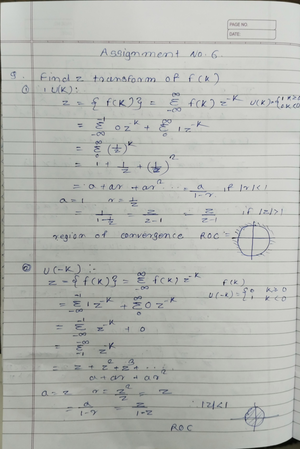 PAGE NO.
DATE:
Assignment No. 6
Q. Find z transform of f(k)
① U(k):
z = {f(k)} = Σ f(k) z^-k U(k) =
= Σ 0z^-k + Σ 1z^-k
= Σ (1/z)^k
= 1 + 1/z + (1/z)^2
= a + ar + ar^2 ... = a/1-r if |r|<1
a = 1 r = 1/z
= 1/1-1/z = z/z-1 = z/z-1 if |z|>1
region of convergence ROC =
② U(-k) :-
z - {f(k)} = Σ f(k) z^-k f(k)
U(-k) = {0 k≥0
1 k<0
= Σ 1z^-k + Σ 0z^-k
= Σ z^-k + 0
= Σ z^-k
= z + z^2 + z^3 + ...
a + ar + ar^2
a = z r = z^2/z = z
= a/1-r = z/1-z |z|<1
ROC